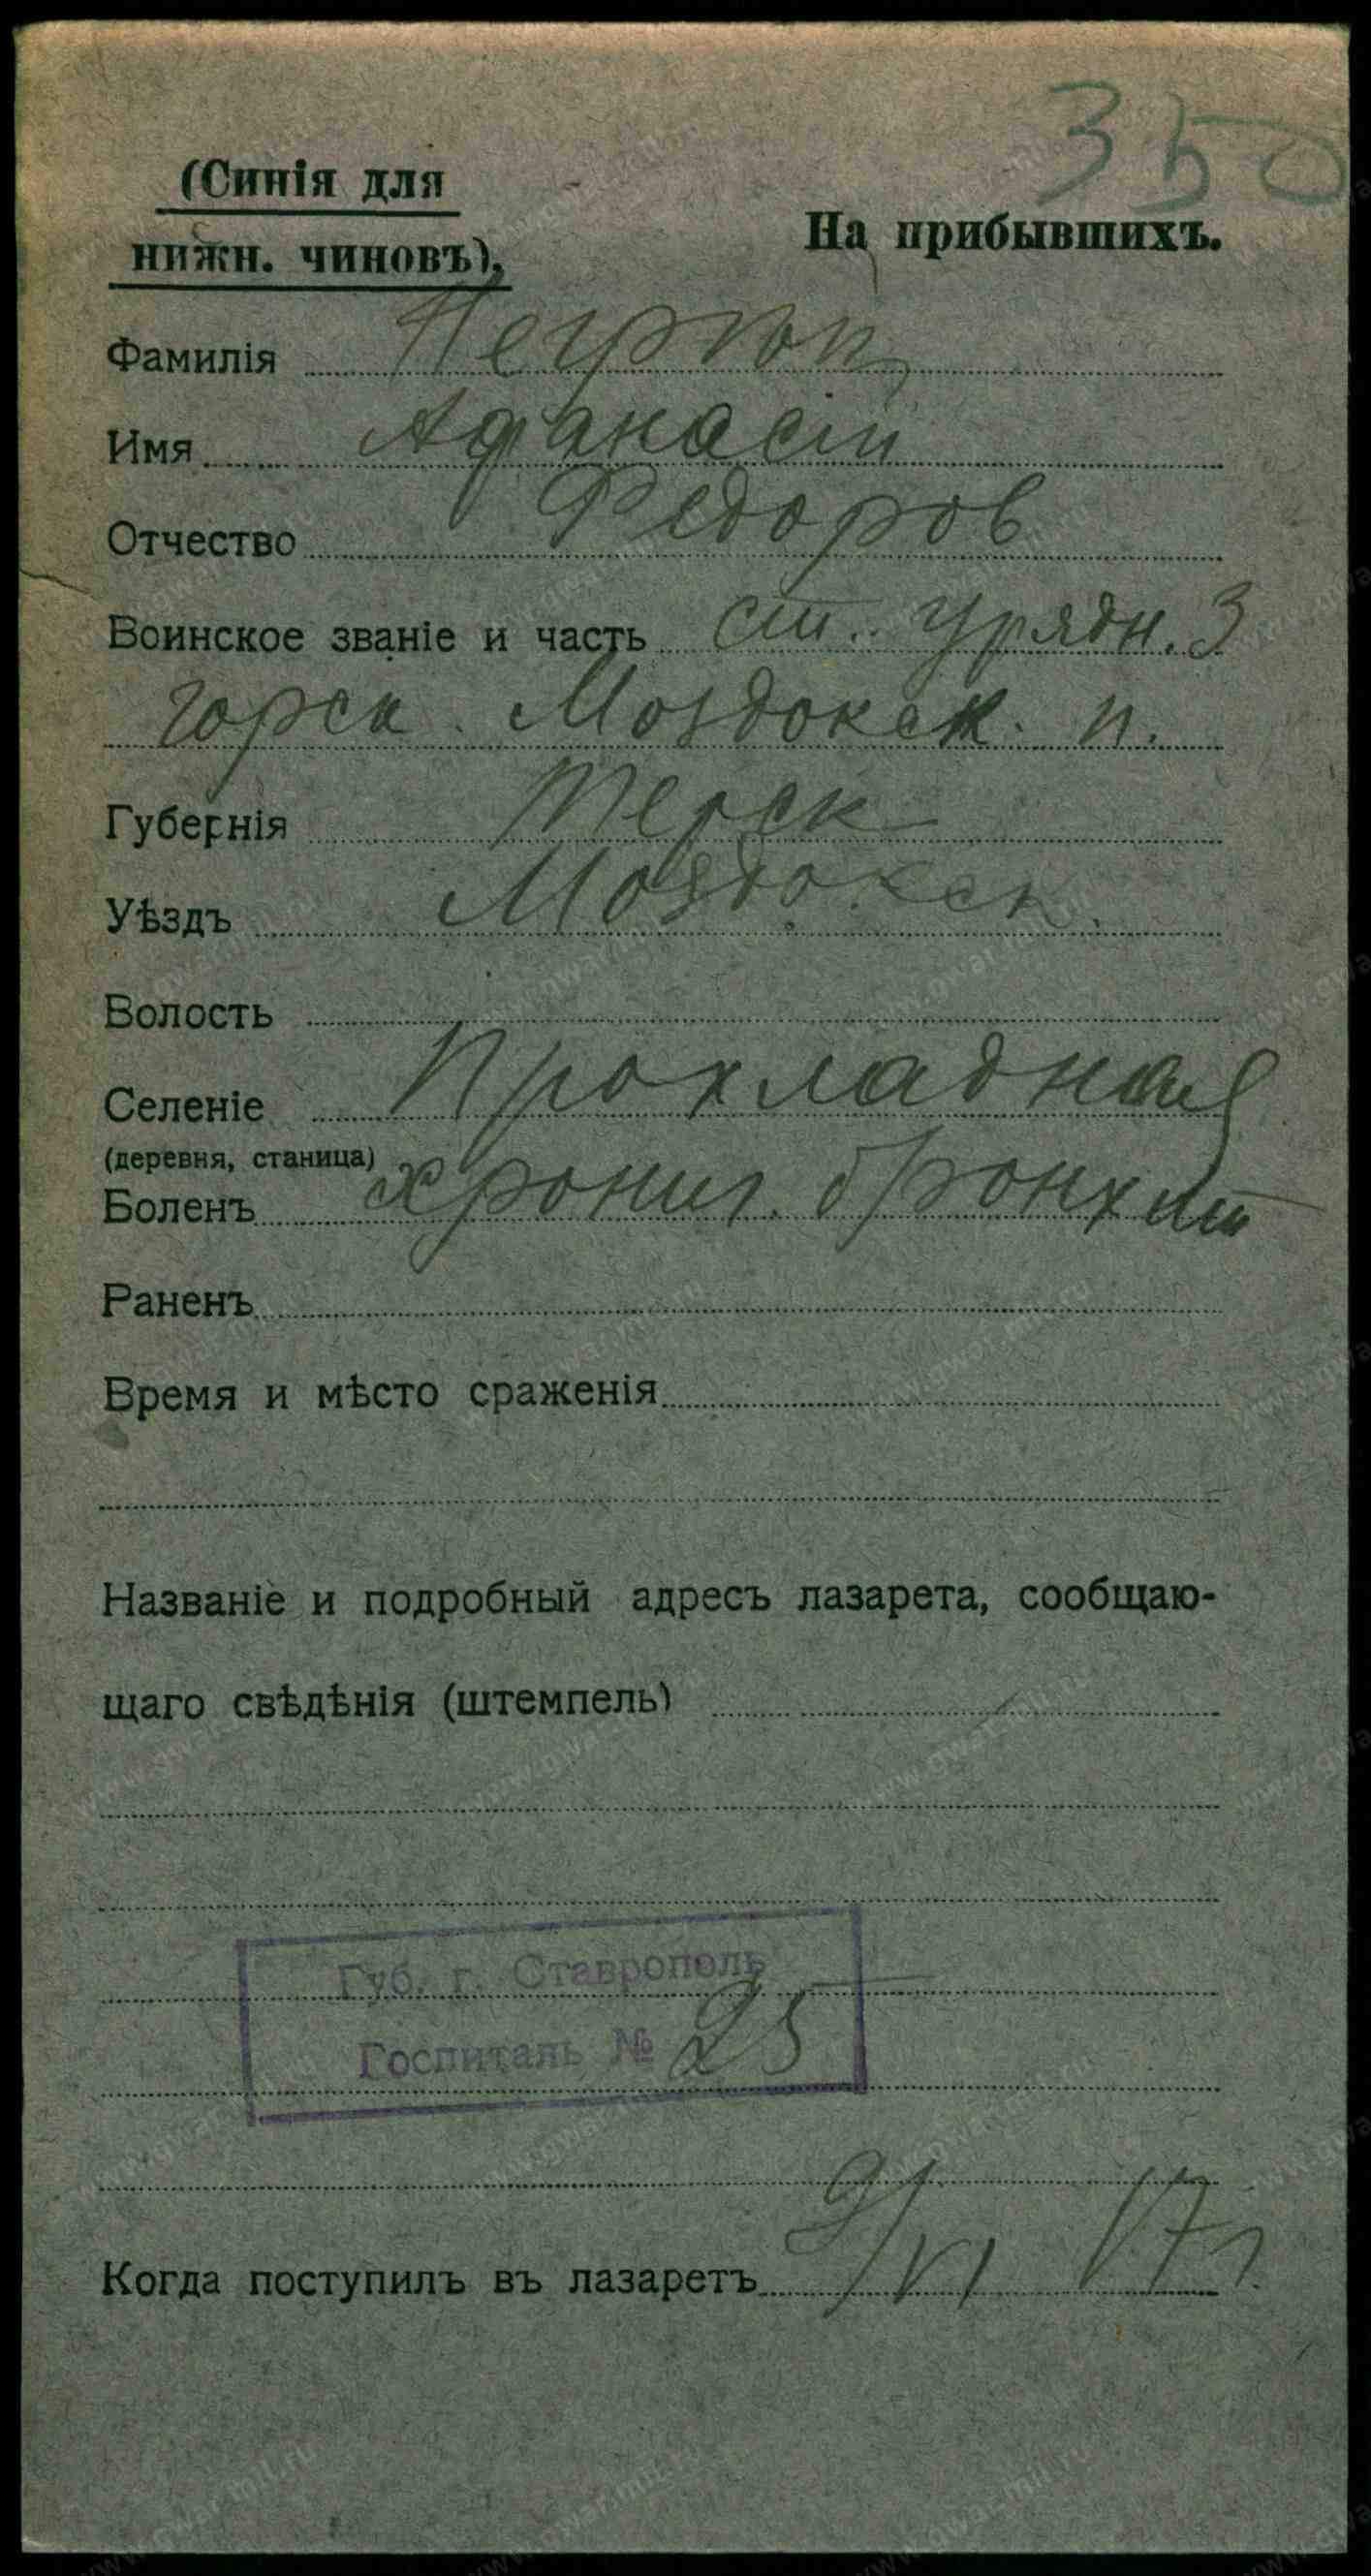 350
(Синія для
нижн. чиновъ).
На прибывшихъ.
Фамилія
Имя Афанасій
Отчество Федоров
Воинское званіе и часть ст. урядн. 3
горск. Моздокск. п.
Губернія Терск
Уѣздъ Моздокск.
Волость
Селеніе Прохладная
(деревня, станица)
Боленъ хронич. бронхит
Раненъ
Время и мѣсто сраженія
Названіе и подробный адресъ лазарета, сообщаю-
щаго свѣдѣнія (штемпель)
Губ. г. Ставрополь
Госпиталь № 25
Когда поступилъ въ лазаретъ 9/VI 17 г.